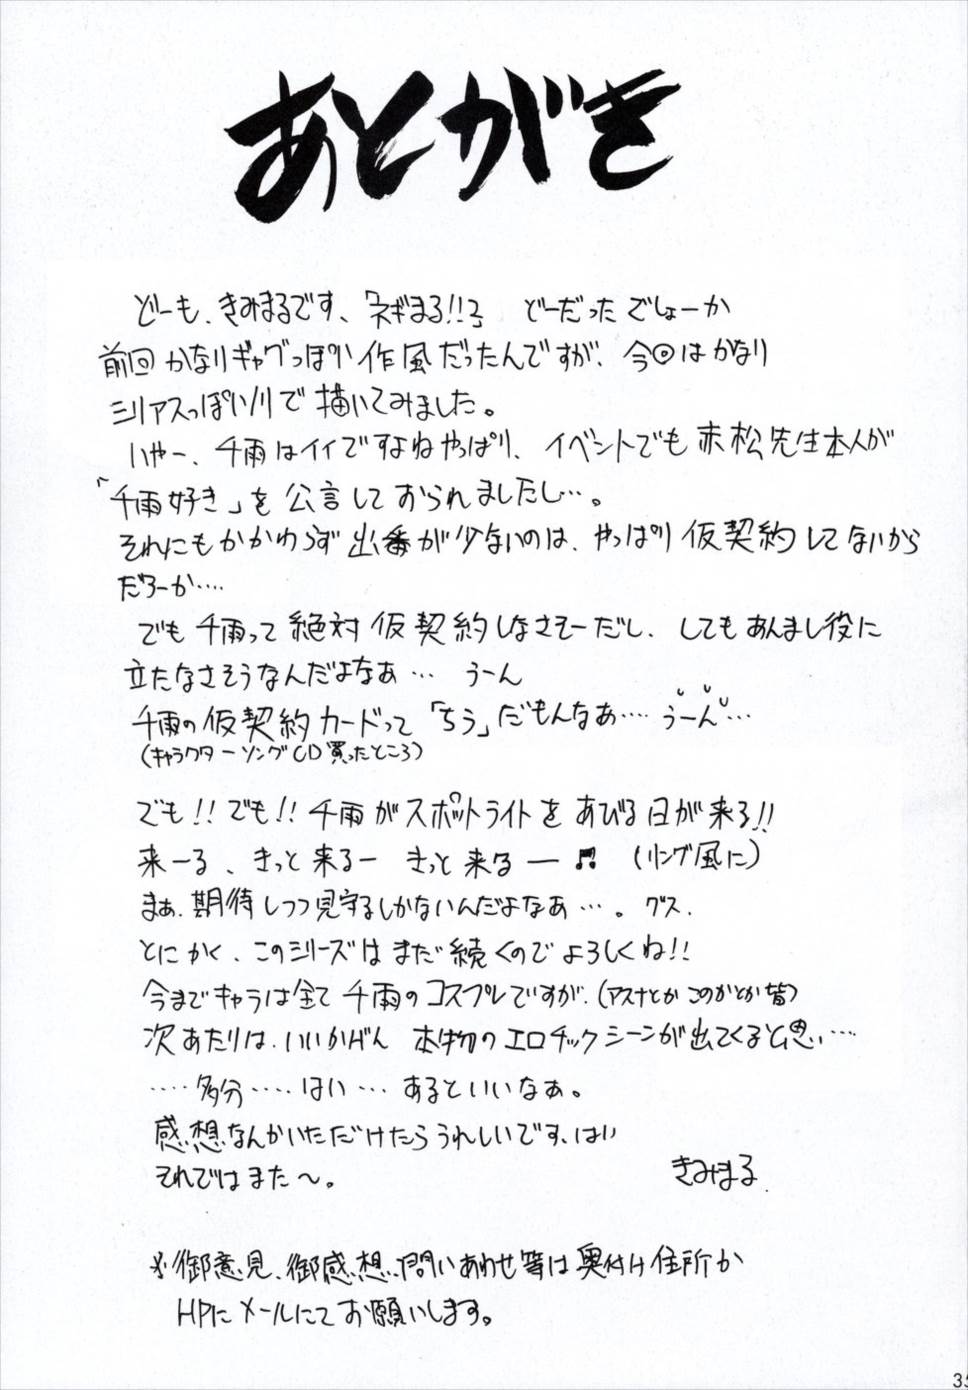 あとがき
どーも、きみまるです、「ネギまる!!」 どーだったでしょーか
前回かなりギャグっぽい作風だったんですが、今回はかなり
シリアスっぽいノリで描いてみました。
いやー、千雨はイイですよねやっぱり、イベントでも赤松先生本人が
「千雨好き」を公言しておられましたし…。
それにもかかわらず出番が少ないのは、やっぱり仮契約してないから
だろーか….
でも千雨って絶対仮契約しなさそーだし、してもあんまし役に
立たなさそうなんだよなあ… うーん
千雨の仮契約カードって「ちう」だもんなあ…. うーん…
(キャラクターソングCD買ったところ)
でも!!でも!!千雨がスポットライトをあびる日が来る!!
来ーる、きっと来るー きっと来るー♬ (リング風に)
まぁ、期待しつつ見守るしかないんだよなあ…。グス.
とにかく、このシリーズはまだ続くのでよろしくね!!
今までキャラは全て千雨のコスプレですが、(アスナとかこのかとか皆)
次あたりは、いいかげん 本物のエロチックシーンが出てくると思い….
…..多分…..はい…あるといいなぁ。
感想なんかいただけたらうれしいです、はい
それではまた〜。
きみまる.
※御意見、御感想、問いあわせ等は奥付け住所か
HPにメールにてお願いします。
35